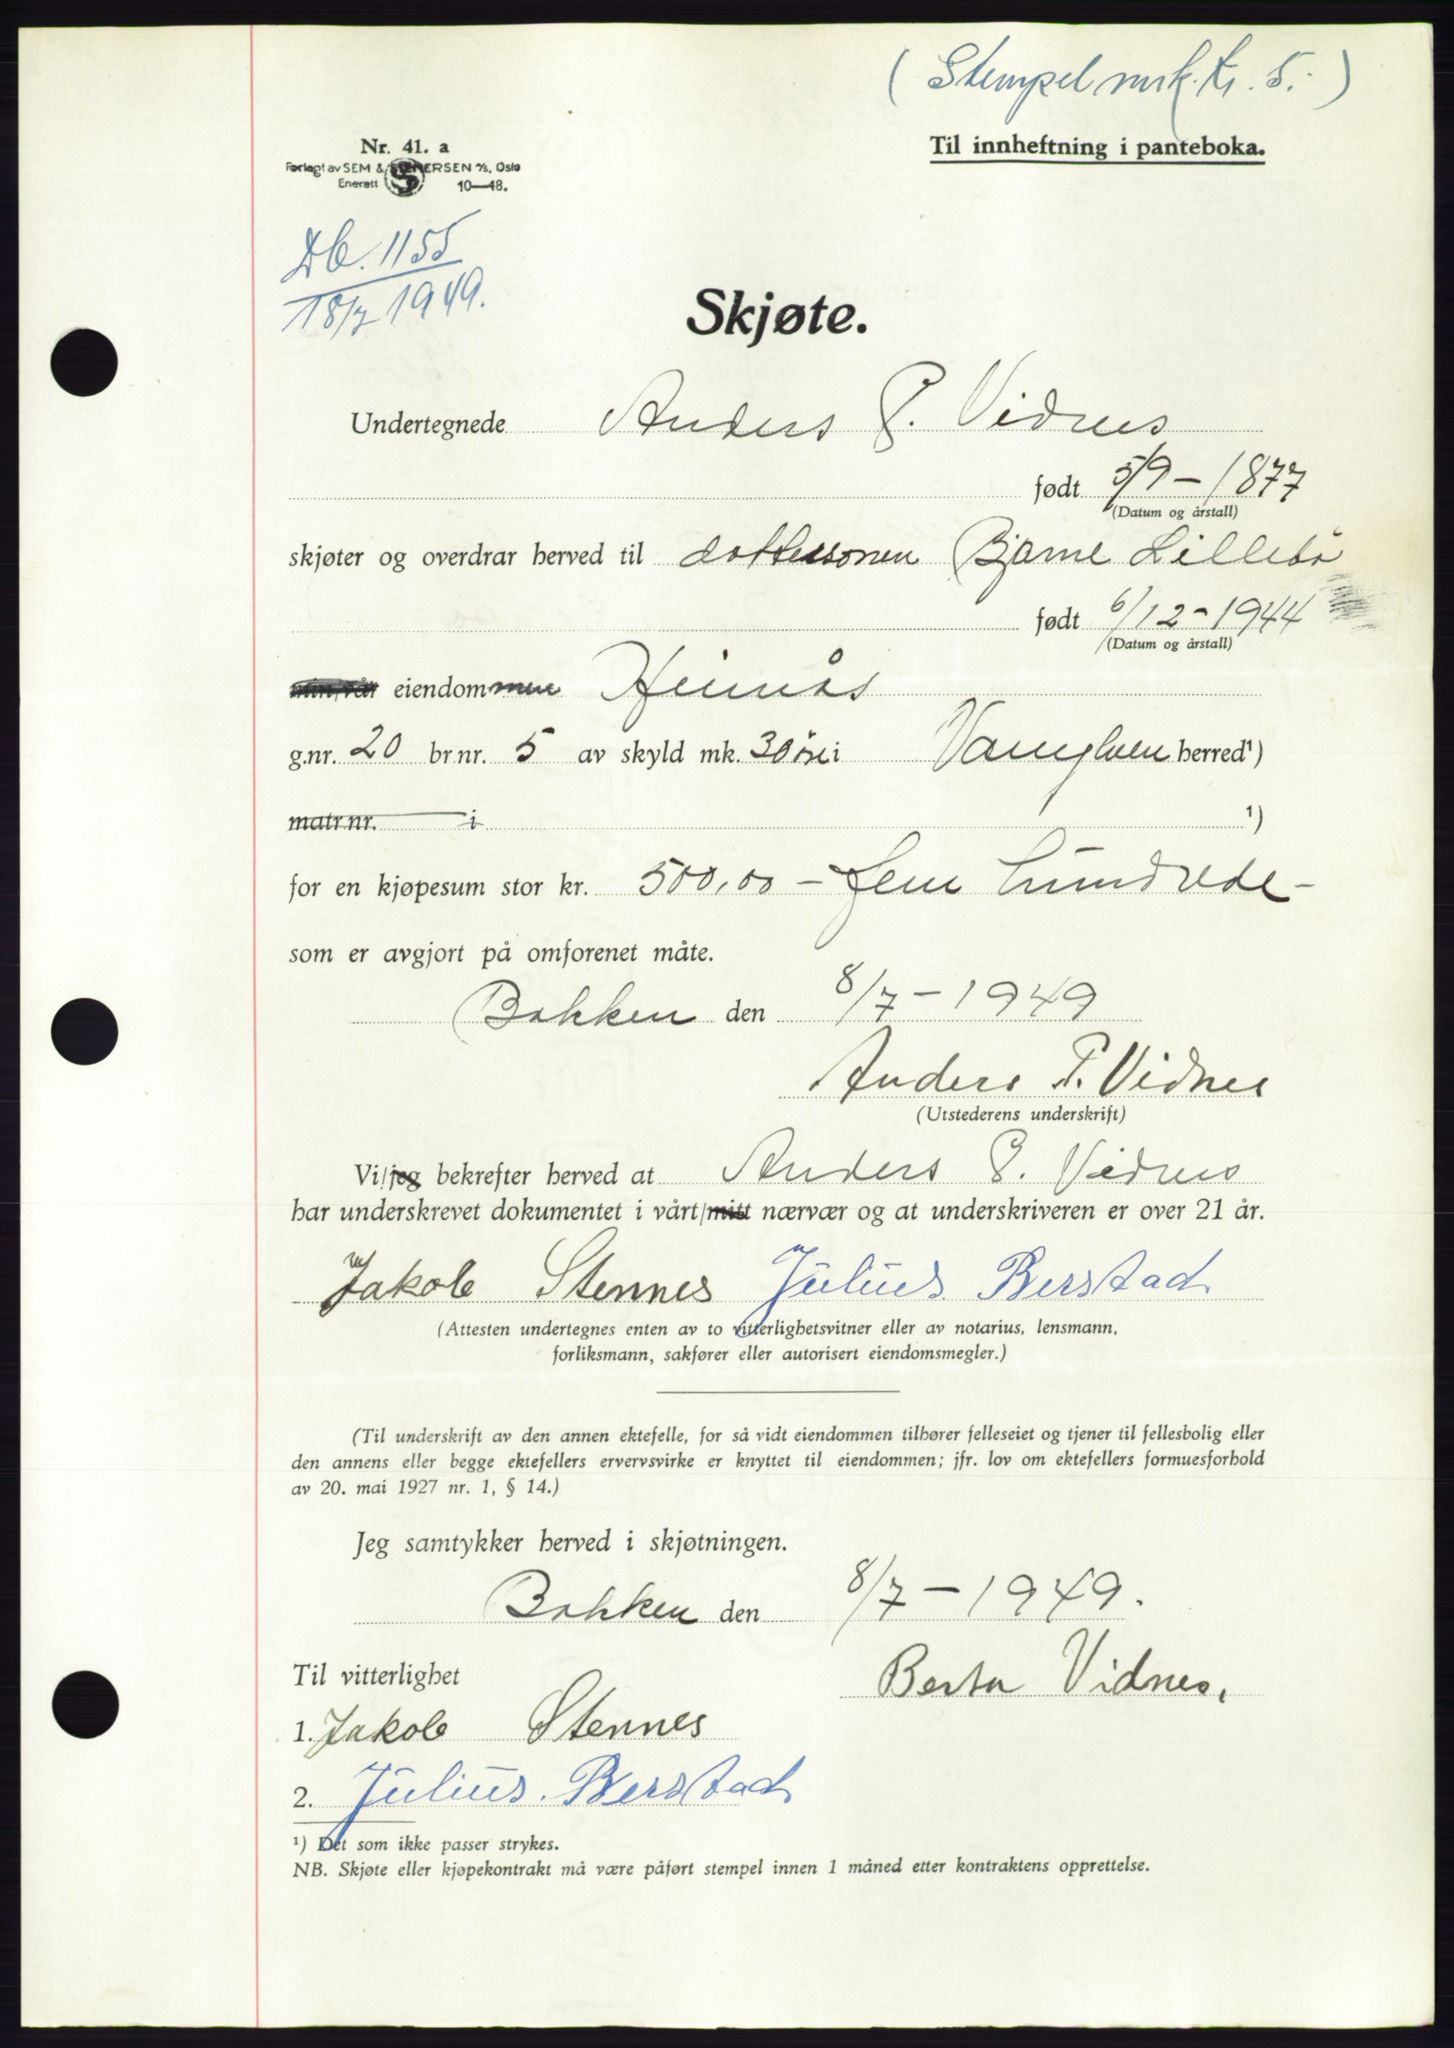 ( Stempelmrk. kr. 5.- )
Til innheftning i panteboka.
Nr. 41. a
Forlagt av SEM & STENERSEN A/S, Oslo
Enerett 10—48.
Db. 1155
18/7 1949.
Skjøte.
Undertegnede Anders P. Vidnes
født 5/9 - 1877
(Datum og årstall)
skjøter og overdrar herved til dottersonen Bjarne Lillebø
født 6/12 - 1944
(Datum og årstall)
min/vår eiendommen Heimås
g.nr. 20 br.nr. 5 av skyld mk. 30 øre i Vanylven herred¹)
matr.nr. i ¹)
for en kjøpesum stor kr. 500,00 - fem hundrede -
som er avgjort på omforenet måte.
Bakken den 8/7 - 1949
Anders P. Vidnes
(Utstederens underskrift)
Vi/jeg bekrefter herved at Anders P. Vidnes
har underskrevet dokumentet i vårt/mitt nærvær og at underskriveren er over 21 år.
Jakob Stennes Julius Berstad
(Attesten undertegnes enten av to vitterlighetsvitner eller av notarius, lensmann,
forliksmann, sakfører eller autorisert eiendomsmegler.)
(Til underskrift av den annen ektefelle, for så vidt eiendommen tilhører felleseiet og tjener til fellesbolig eller
den annens eller begge ektefellers ervervsvirke er knyttet til eiendommen; jfr. lov om ektefellers formuesforhold
av 20. mai 1927 nr. 1, § 14.)
Jeg samtykker herved i skjøtningen.
Bakken den 8/7 - 1949.
Til vitterlighet Berta Vidnes.
1. Jakob Stennes
2. Julius. Berstad
¹) Det som ikke passer strykes.
NB. Skjøte eller kjøpekontrakt må være påført stempel innen 1 måned etter kontraktens opprettelse.